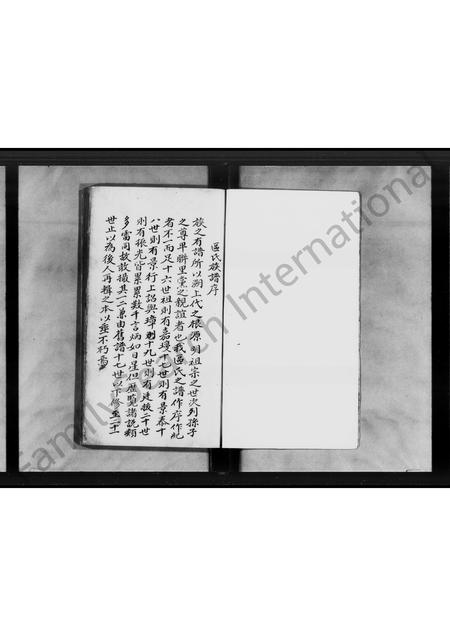 區氏族譜序
族之有譜所以溯上代之根源明祖宗之世次列孫子
之尊卑聯里黨之親誼者也我區氏之譜作序作紀
者不一而足十六世祖則有嘉璦十七世則有景泰十
八世則有景行上詔與璋則十九世則有廷振二十世
則有振光皆累累數千言炳如日星但歷覽諸説類
多雷同故敢撮其一二兼由舊譜十七世以下修至二十一
世止以為後人再輯之本以垂不朽焉
Family Search International